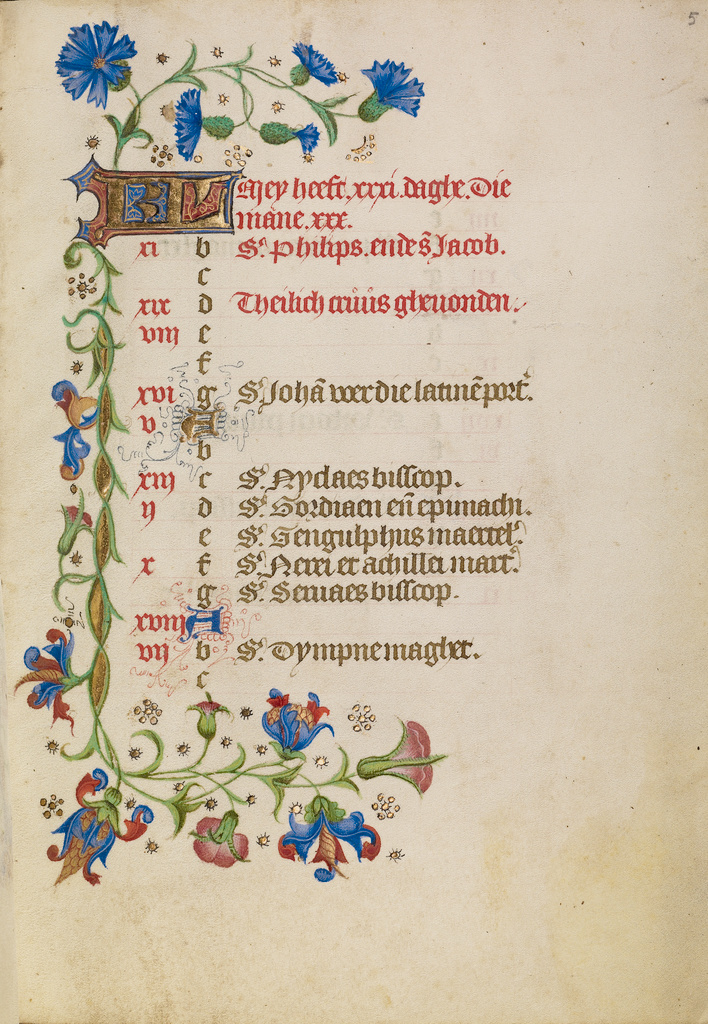 5
KL Mey heeft .xxxi. daghe. Die
mane .xxx.
xi b S². Philips. ende s̃ Jacob.
c
xix d Theilich cruus gheuonden.
viii e
f
xvi g S². Johã voer die latinẽ port².
v A
b
xiii c S². Nyclaes bisscop.
ii d S². Gordiaen eñ epimachi.
e S². Gengulphus maertel².
x f S². Nerei et achillei mart².
g S². Seruaes bisscop.
xviii A
vii b S². Dympne maghet.
c